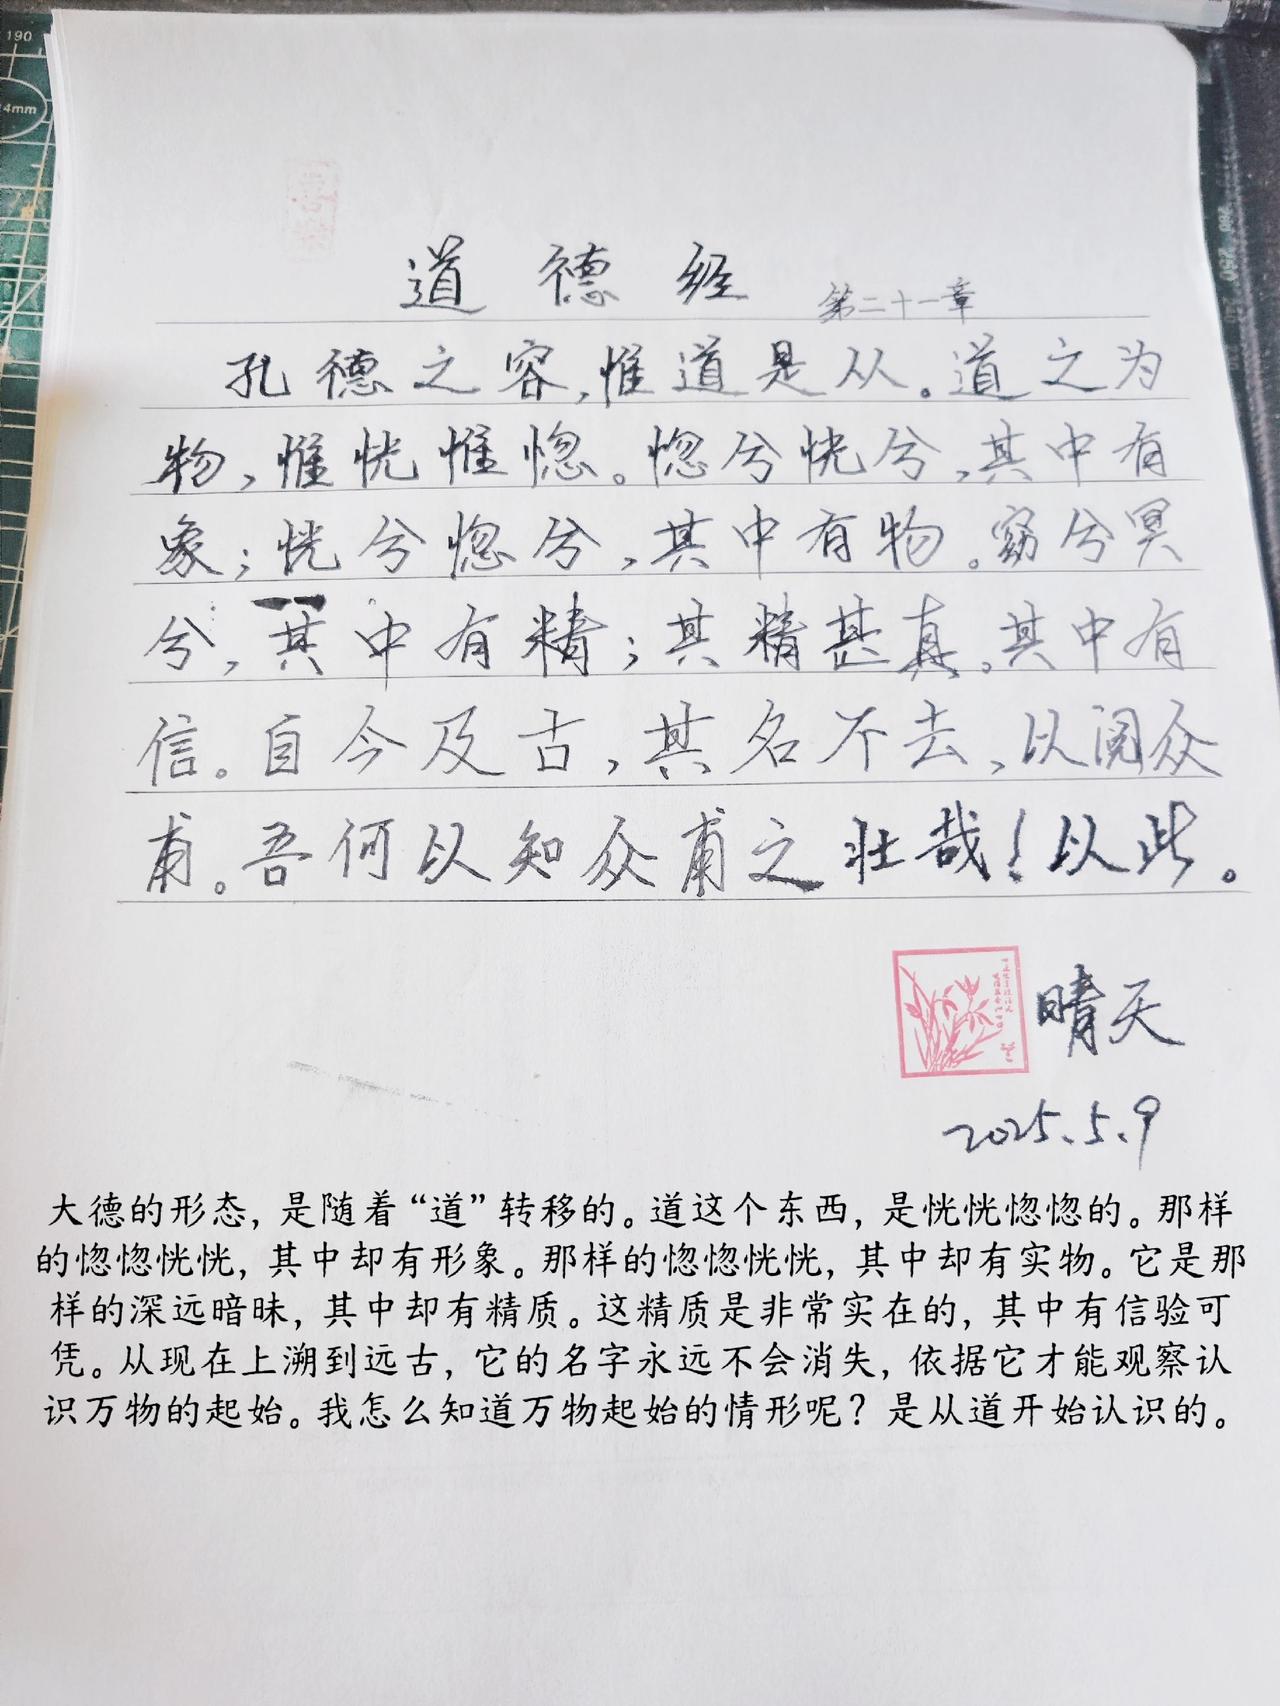 190
4mm
道德经 第二十一章
孔德之容,惟道是从。道之为
物,惟恍惟惚。惚兮恍兮,其中有
象;恍兮惚兮,其中有物。窈兮冥
兮,其中有精;其精甚真。其中有
信。自今及古,其名不去,以阅众
甫。吾何以知众甫之壮哉!以此。
晴天
2025.5.9
大德的形态,是随着“道”转移的。道这个东西,是恍恍惚惚的。那样
的惚惚恍恍,其中却有形象。那样的惚惚恍恍,其中却有实物。它是那
样的深远暗昧,其中却有精质。这精质是非常实在的,其中有信验可
凭。从现在上溯到远古,它的名字永远不会消失,依据它才能观察认
识万物的起始。我怎么知道万物起始的情形呢?是从道开始认识的。